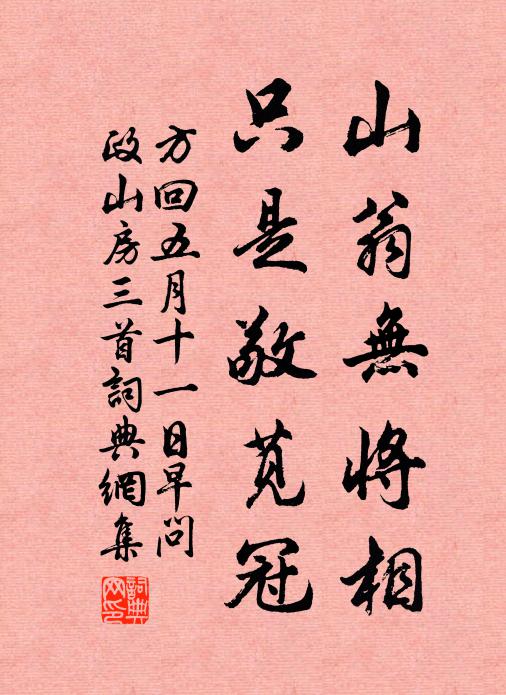 山翁無將相
只是敬莧冠
方回五月十一日早問
政山房三首詞典網集
詞典網印